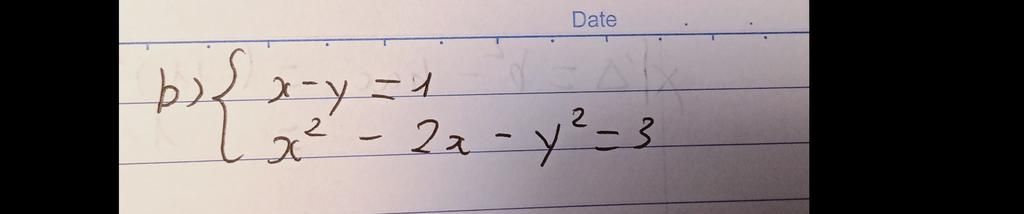 Date
b) { x - y = 1
x² - 2x - y² = 3